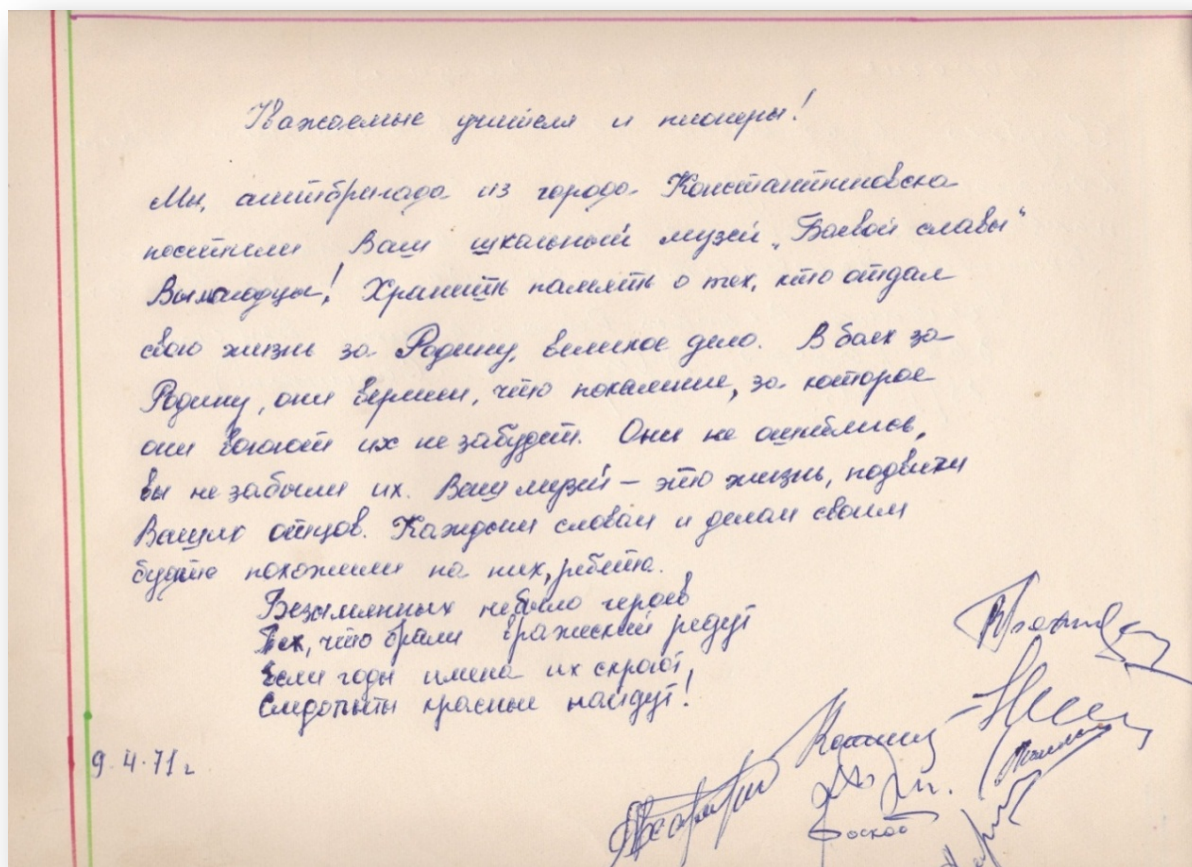 Уважаемые учителя и пионеры!
Мы, агитбригада из города Константиновска
посетили Ваш школьный музей „Боевой славы"
Вы молодцы! Хранить память о тех, кто отдал
свою жизнь за Родину, великое дело. В боях за
Родину, они верили, что поколение, за которое
они воюют их не забудет. Они не ошиблись,
вы не забыли их. Ваш музей – это жизнь, подвиги
Ваших отцов. Каждым словом и делом своим
будьте похожими на них, ребята.
Безымянных не было героев
Тех, что брали вражеский редут
Если годы имена их скроют,
Следопыты красные найдут!
9.4.71 г